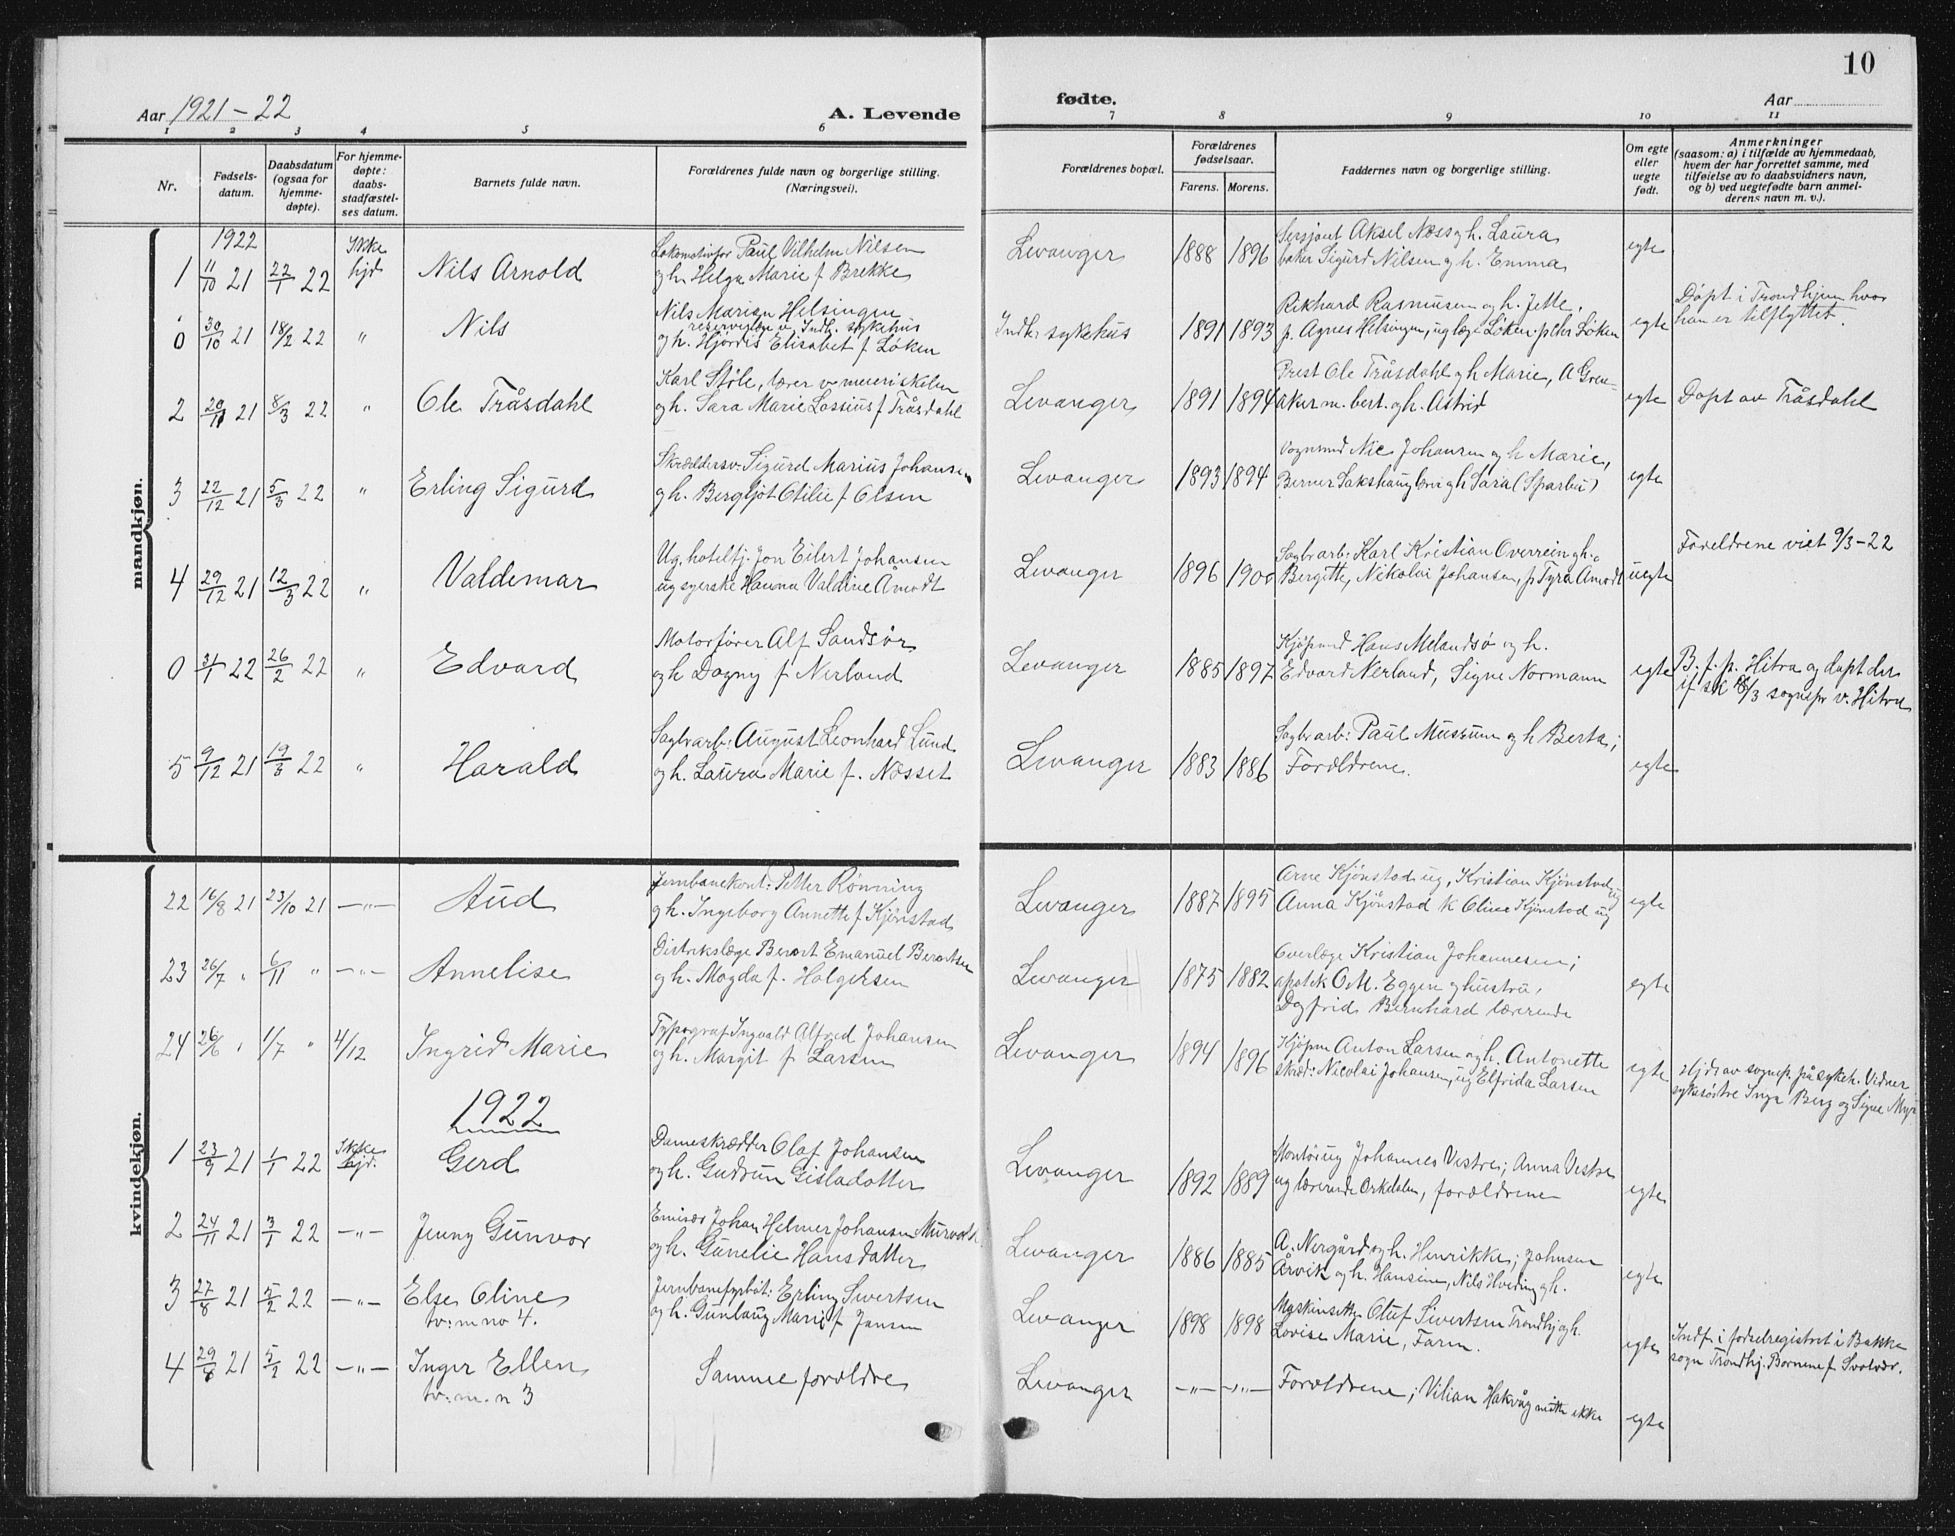 10
Aar 1921-22
A. Levende
fødte.
Aar
1 2 3 4 5 6 7 8 9 10 11
Nr.
Fødsels-
datum.
Daabsdatum
(ogsaa for
hjemme-
døpte).
For hjemme-
døpte:
daabs-
stadfæstel-
ses datum.
Barnets fulde navn.
Forældrenes fulde navn og borgerlige stilling.
(Næringsvei).
Forældrenes bopæl.
Forældrenes
fødselsaar.
Farens. Morens.
Faddernes navn og borgerlige stilling.
Om egte
eller
uegte
født.
Anmerkninger
(saasom: a) i tilfælde av hjemmedaab,
hvem der har forrettet samme, med
tilføielse av to daabsvidners navn,
og b) ved uegtefødte barn anmel-
derens navn m. v.).
mandkjøn.
1922
1 11/10 21 22/1 22 Ikke hjd Nils Arnold
Paul Vilhelm Nilsen
og h. Helga Marie f Brekke
Levanger 1888 1896
Sersjant Aksel Næss og h. Laura
baker Sigurd Nilsen og h. Emma
egte
0 30/10 21 18/2 22 " Nils
Nils Marign Helsingen
reservelæge v. Indh. sykehus
og h. Hjørdis Elisabet f Løken
Indh. sykehus 1891 1893
Rikhard Rasmussen og h. Jette,
p. Agnes Helsingen, ug læge Løken
egte
Døpt i Trondhjem hvor
han er tilflyttet.
2 20/11 21 8/3 22 " Ole Tråsdahl
Karl Støle, lærer v meieriskolen
og h. Sara Marie Lossius f Tråsdahl
Levanger 1891 1894
Prest Ole Tråsdahl og h Marie, A Gren-
aker m. bert. og h. Astrid
egte
Døpt av Tråsdahl
3 22/12 21 5/3 22 " Erling Sigurd
Skræddersv. Sigurd Marius Johansen
og h. Bergljot Otilie f Olsen
Levanger 1893 1894
Vognmnd Nic Johansen og h Marie,
Berner Sakshaug og h Sara (Sparbu)
egte
4 29/12 21 12/3 22 " Valdemar
Ug. hoteltj. Jon Eilert Johansen
ug syerske Hanna Valdine Åmodt
Levanger 1896 1900
Sagbrarb: Karl Kristian Overrein og h.
Bergitte, Nikolai Johansen, p Tyra Åmodt
uegte
Foreldrene viet 9/3-22
0 3/1 22 26/2 22 " Edvard
Motorfører Alf Sandsør
og h Dagny f Nerland
Levanger 1885 1897
Kjøpmnd Hans Melandsø og h.
Edvard Nerland, Signe Normann
egte
B. f. p. Hitra og døpt der
if. skr 16/3 sognepr v. Hitra
5 9/12 21 19/3 22 " Harald
Sagbrarb: August Leonhard Lund
og h. Laura Marie f. Næsset
Levanger 1883 1886
Sagbrarb: Paul Mussum og h Berta;
Forældrene.
egte
kvindekjøn.
22 16/8 21 23/10 21 -"- Aud
Jernbanekont: Petter Rønning
og h. Ingeborg Annette f Kjønstad
Levanger 1887 1895
Arne Kjønstad ug, Kristian Kjønstad ug
Anna Kjønstad k Oline Kjønstad ug
egte
23 26/7 " 6/11 " -"- Annelise
Distrikslæge Berort Emanuel Berortsen
og h. Magda f. Holgersen
Levanger 1875 1882
Overlæge Kristian Johannesen;
apotek O M. Eggen og hustru,
Dagfrid Bernhard lærerinde
egte
24 26/6 " 1/7 " 4/12 Ingrid Marie
Typograf Ingvald Alfred Johansen
og h. Margit f Larsen
Levanger 1894 1896
Kjøpm Anton Larsen og h. Antonette
skræd: Nicolai Johansen, ug Elfrida Larsen
egte
Hjd av sognep. på sykeh. Vidner
sykesøstre Inga Berg og Signe
1922
1 23/9 21 1/1 22 Ikke hjd. Gerd
Dameskrædder Olaf Johansen
og h. Gudrun Gisladatter
Levanger 1892 1889
Montør ug Johannes Vestre; Anna Vestre
ug lærerinde Orkdalen, forældrene
egte
2 24/11 21 3/1 22 -"- Jenny Gunvor
Emisær Johan Helmer Johansen Murvold
og h. Gunelie Hansdatter
Levanger 1886 1885
A. Nergård og h. Henrikke; Johnsen
Årvik og h. Hansine, Nils Hveding og h.
egte
3 27/8 21 5/2 22 -"- Else Oline
tv: m no 4.
Erling Sivertsen
og h. Gunlaug Marie f Jansen
Levanger 1898 1898
Maskinsetter Oluf Sivertsen Trondhj og h.
Lovise Marie, Farm.
egte
Indf. i fødselregistret i Bakke
sogn Trondhj. Børnene f. Svolvær.
4 29/8 21 5/2 22 -"- Inger Ellen
tv: m. n 3
Samme forældre
Levanger -"- -"-
Forældrene; Vilian Hakvåg møtte ikke
egte